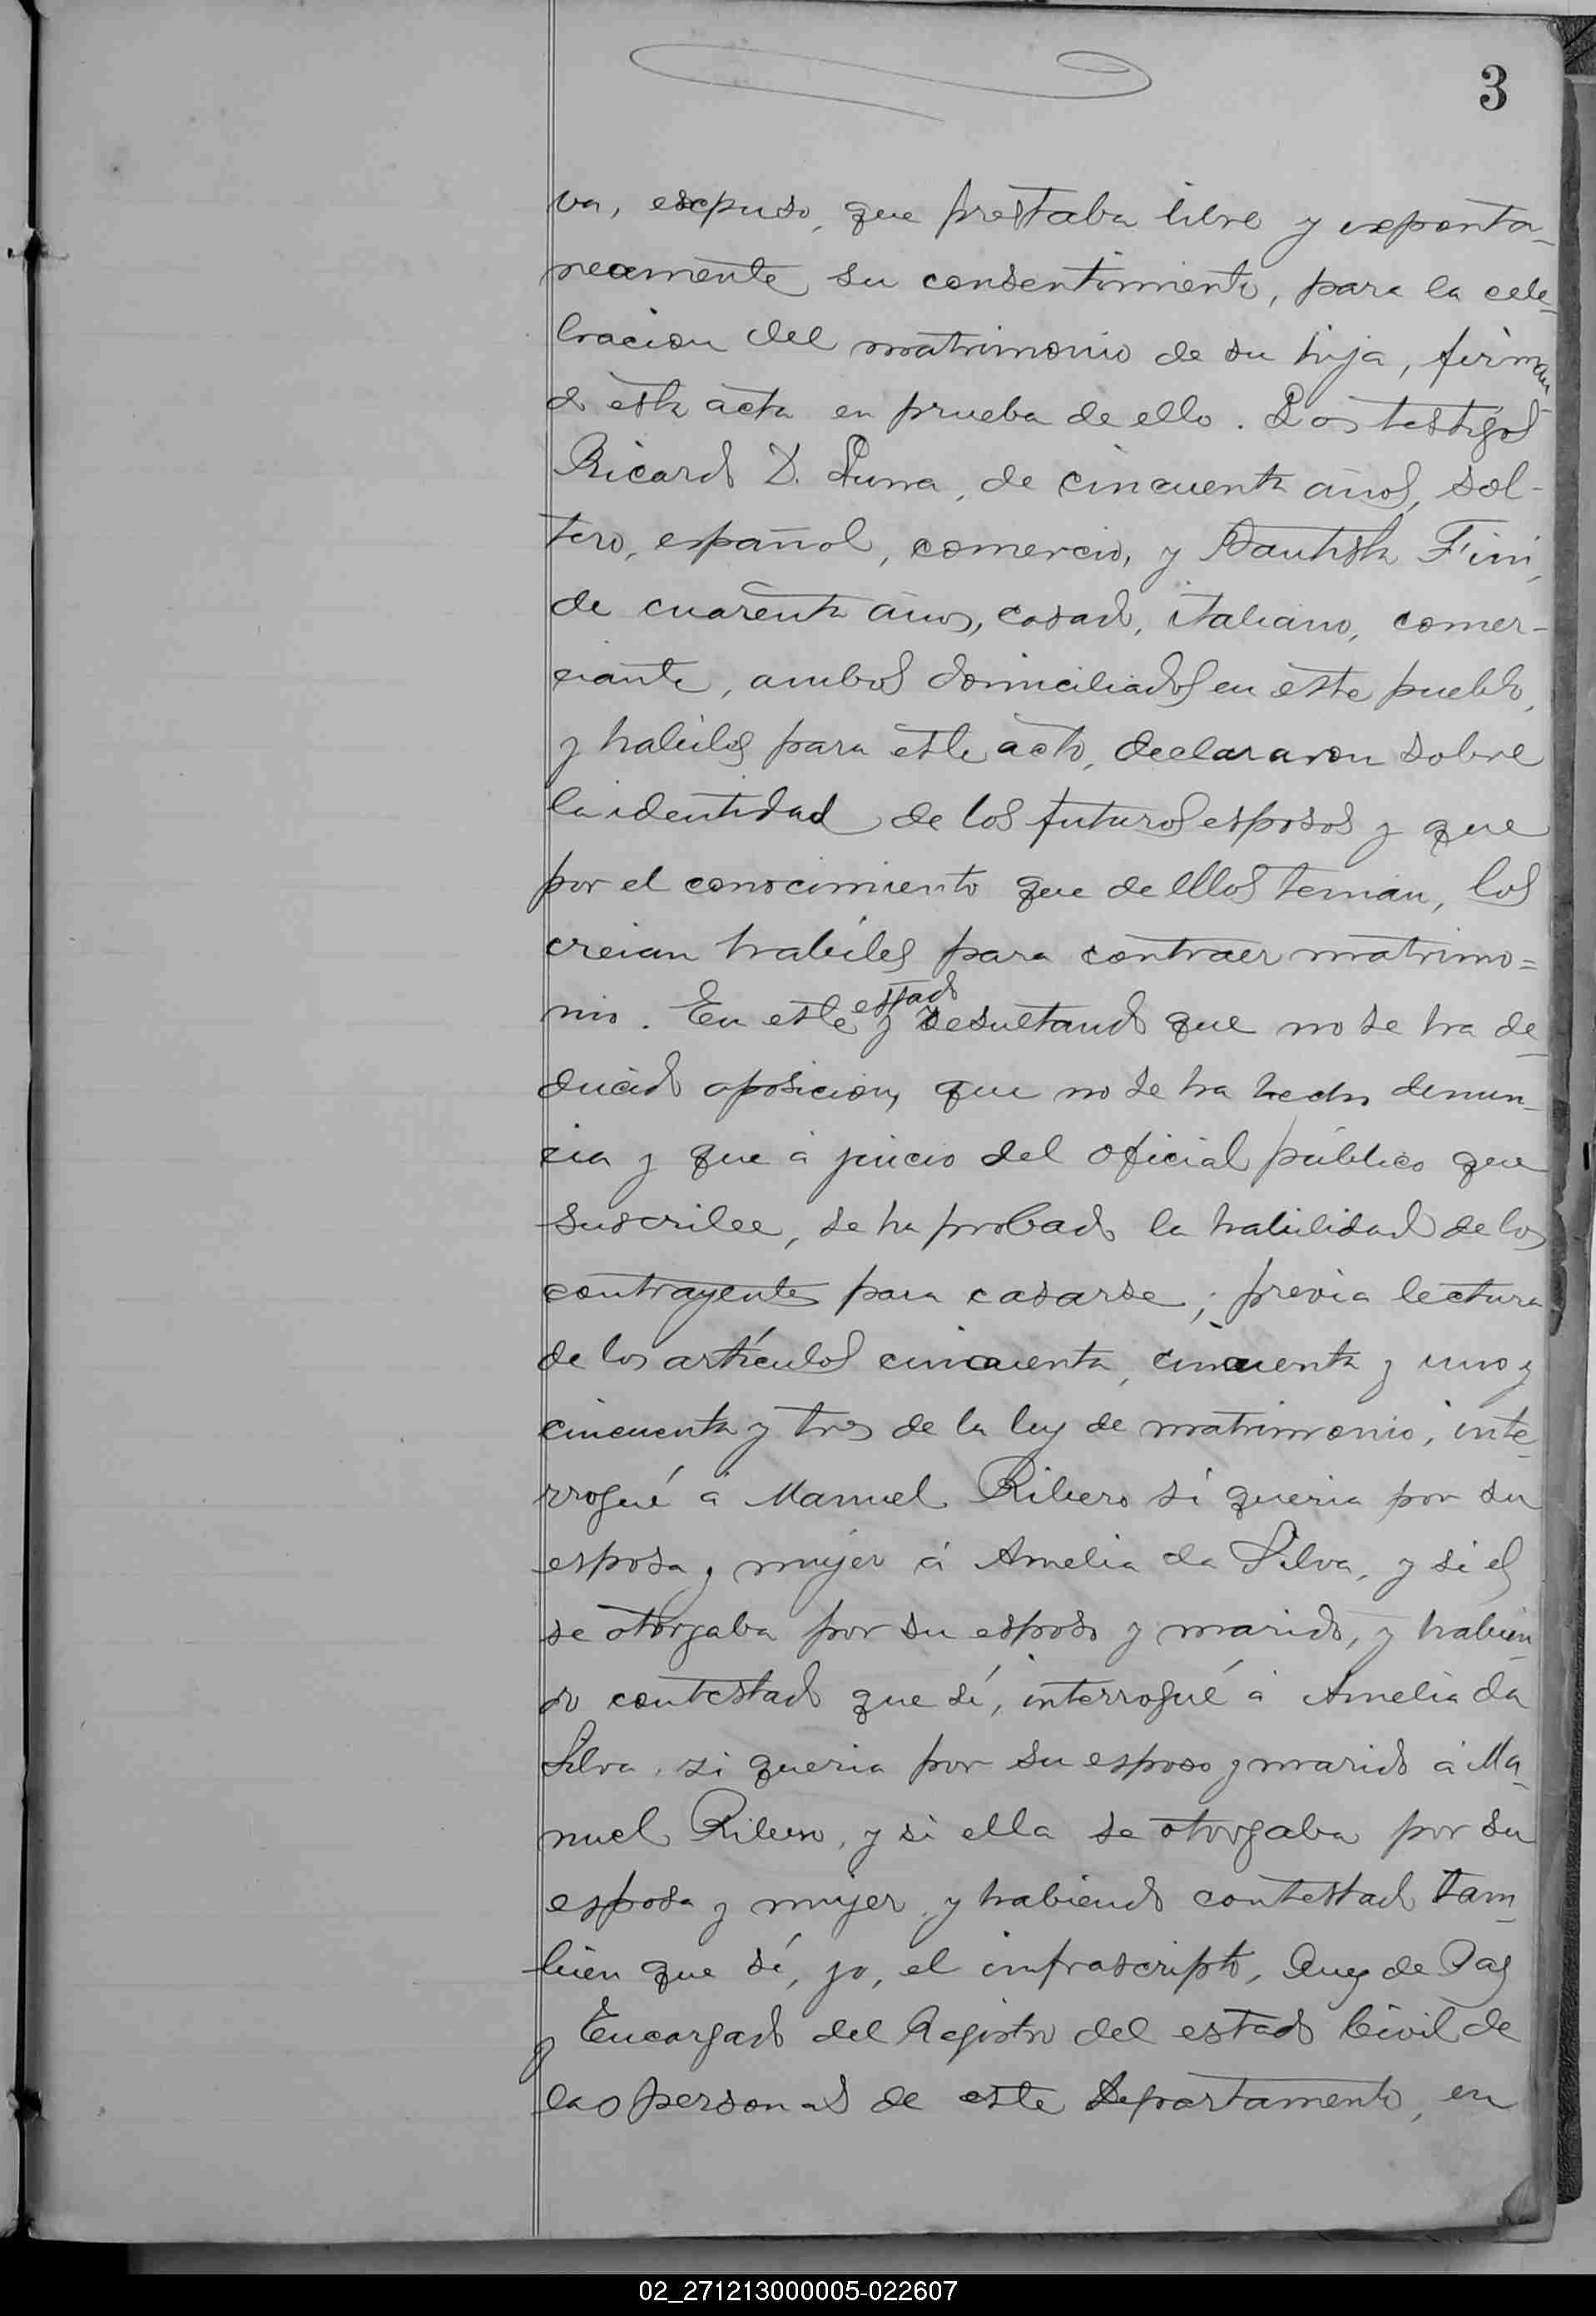 3
va, expuso, que prestaba libre y esponta-
neamente su consentimiento, para la cele-
bracion del matrimonio de su hija, firman-
do esta acta en prueba de ello. Los testigos
Ricardo D. Luna, de cincuenta años, sol-
tero, español, comercio, y Bautista Fini,
de cuarenta años, casado, italiano, comer-
ciante, ambos domiciliados en este pueblo,
y habiles para este acto, declararon sobre
la identidad de los futuros esposos y que
por el conocimiento que de ellos tenian, los
creian habiles para contraer matrimo=
estado
nio. En este y resultando que no se ha de-
ducido oposicion, que no se ha hecho denun-
cia y que á juicio del oficial público que
suscribe, se ha probado la habilidad de los
contrayentes para casarse; previa lectura
de los artículos cincuenta, cincuenta y uno y
cincuenta y tres de la ley de matrimonio, inte-
rrogué á Manuel Ribero si queria por su
esposa y mujer á Amelia da Silva, y si el
se otorgaba por su esposo y marido, y habien-
do contestado que sí, interrogué á Amelia da
Silva, si queria por su esposo y marido á Ma-
nuel Ribero, y si ella se otorgaba por su
esposa y mujer, y habiendo contestado tam-
bien que sí, yo, el infrascripto, Juez de Paz
y Encargado del Registro del estado Civil de
las personas de este Departamento, en
02_271213000005-022607